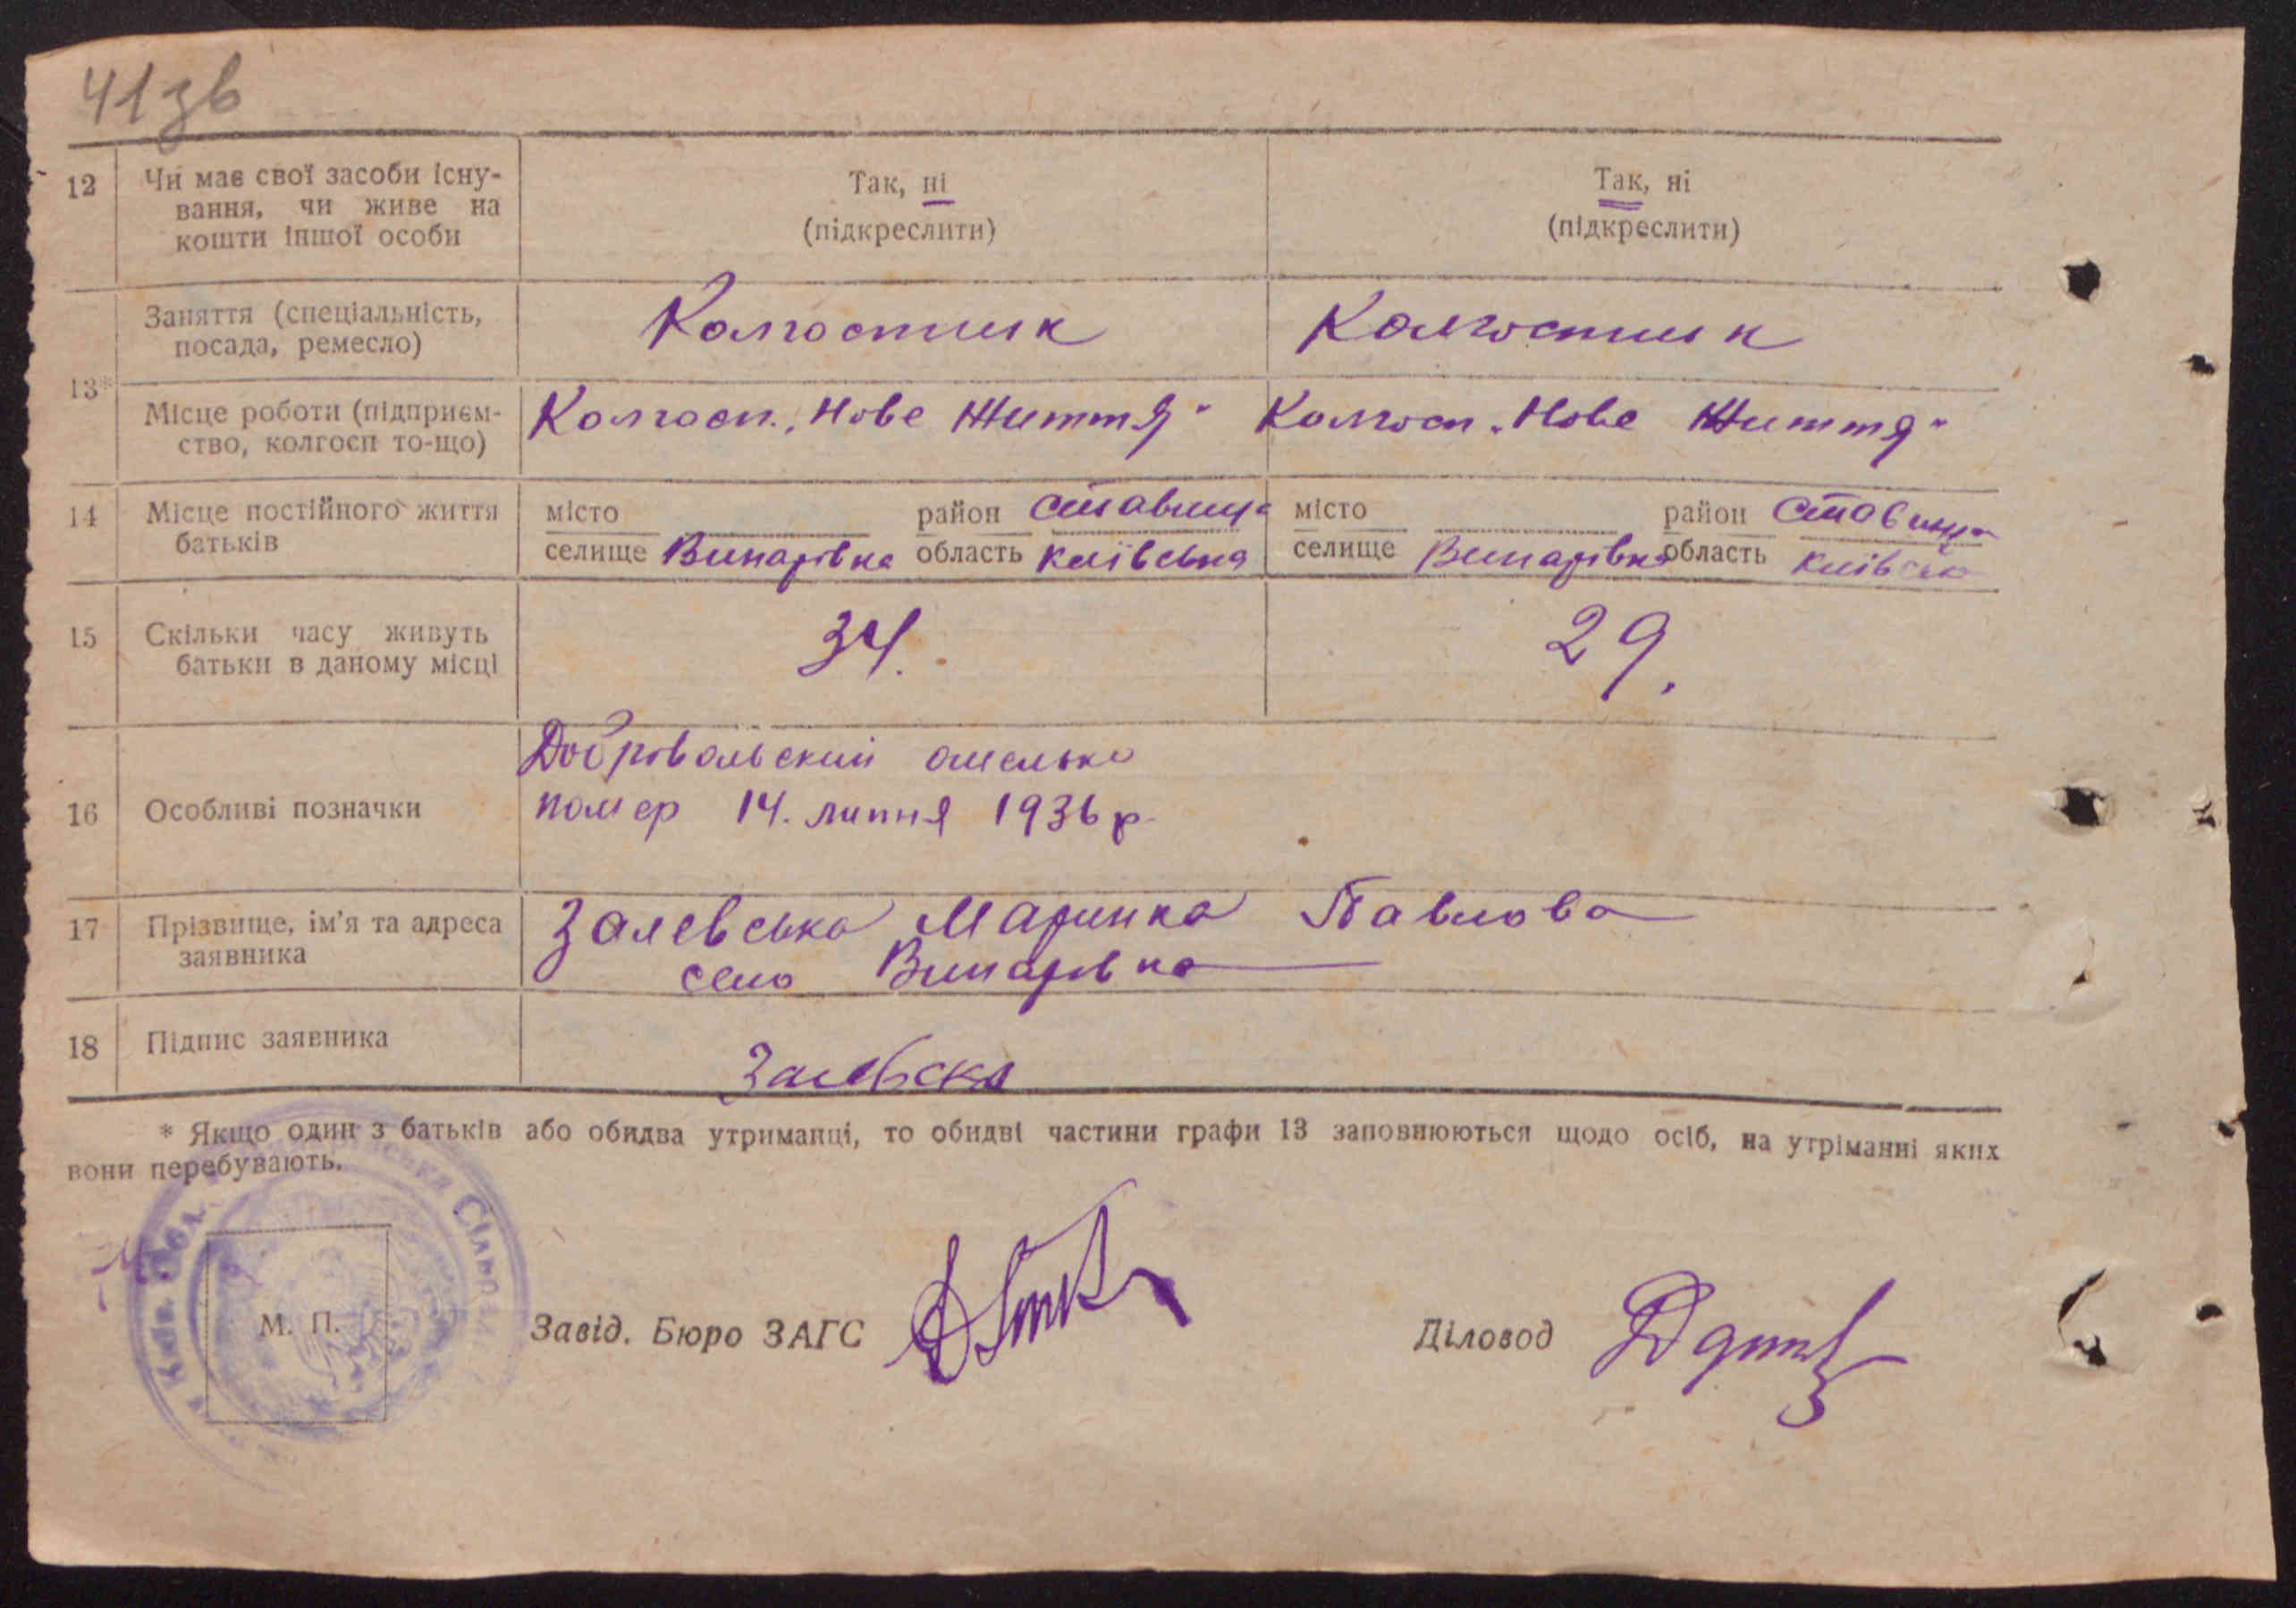 41зв
12 Чи має свої засоби існу-
вання, чи живе на
кошти іншої особи
Так, ні
(підкреслити)
Так, ні
(підкреслити)
13*
Заняття (спеціальність,
посада, ремесло)
Колгоспник
Колгоспник
Місце роботи (підприєм-
ство, колгосп то-що)
Колгосп „Нове Життя"
Колгосп „Нове Життя"
14 Місце постійного життя
батьків
місто район Ставище
селище Винарівка область Київська
місто район Ставище
селище Винарівка область Київська
15 Скільки часу живуть
батьки в даному місці
34.
29.
16 Особливі позначки
Добровольский омелько
помер 14. липня 1936 р.
17 Прізвище, ім'я та адреса
заявника
Залевська Маринка Павлова
село Винарівка
18 Підпис заявника
Залевска
* Якщо один з батьків або обидва утриманці, то обидві частини графи 13 заповнюються щодо осіб, на утріманні яких
вони перебувають.
Київ. Обл. Сільс
М. П.
Завід. Бюро ЗАГС
Діловод